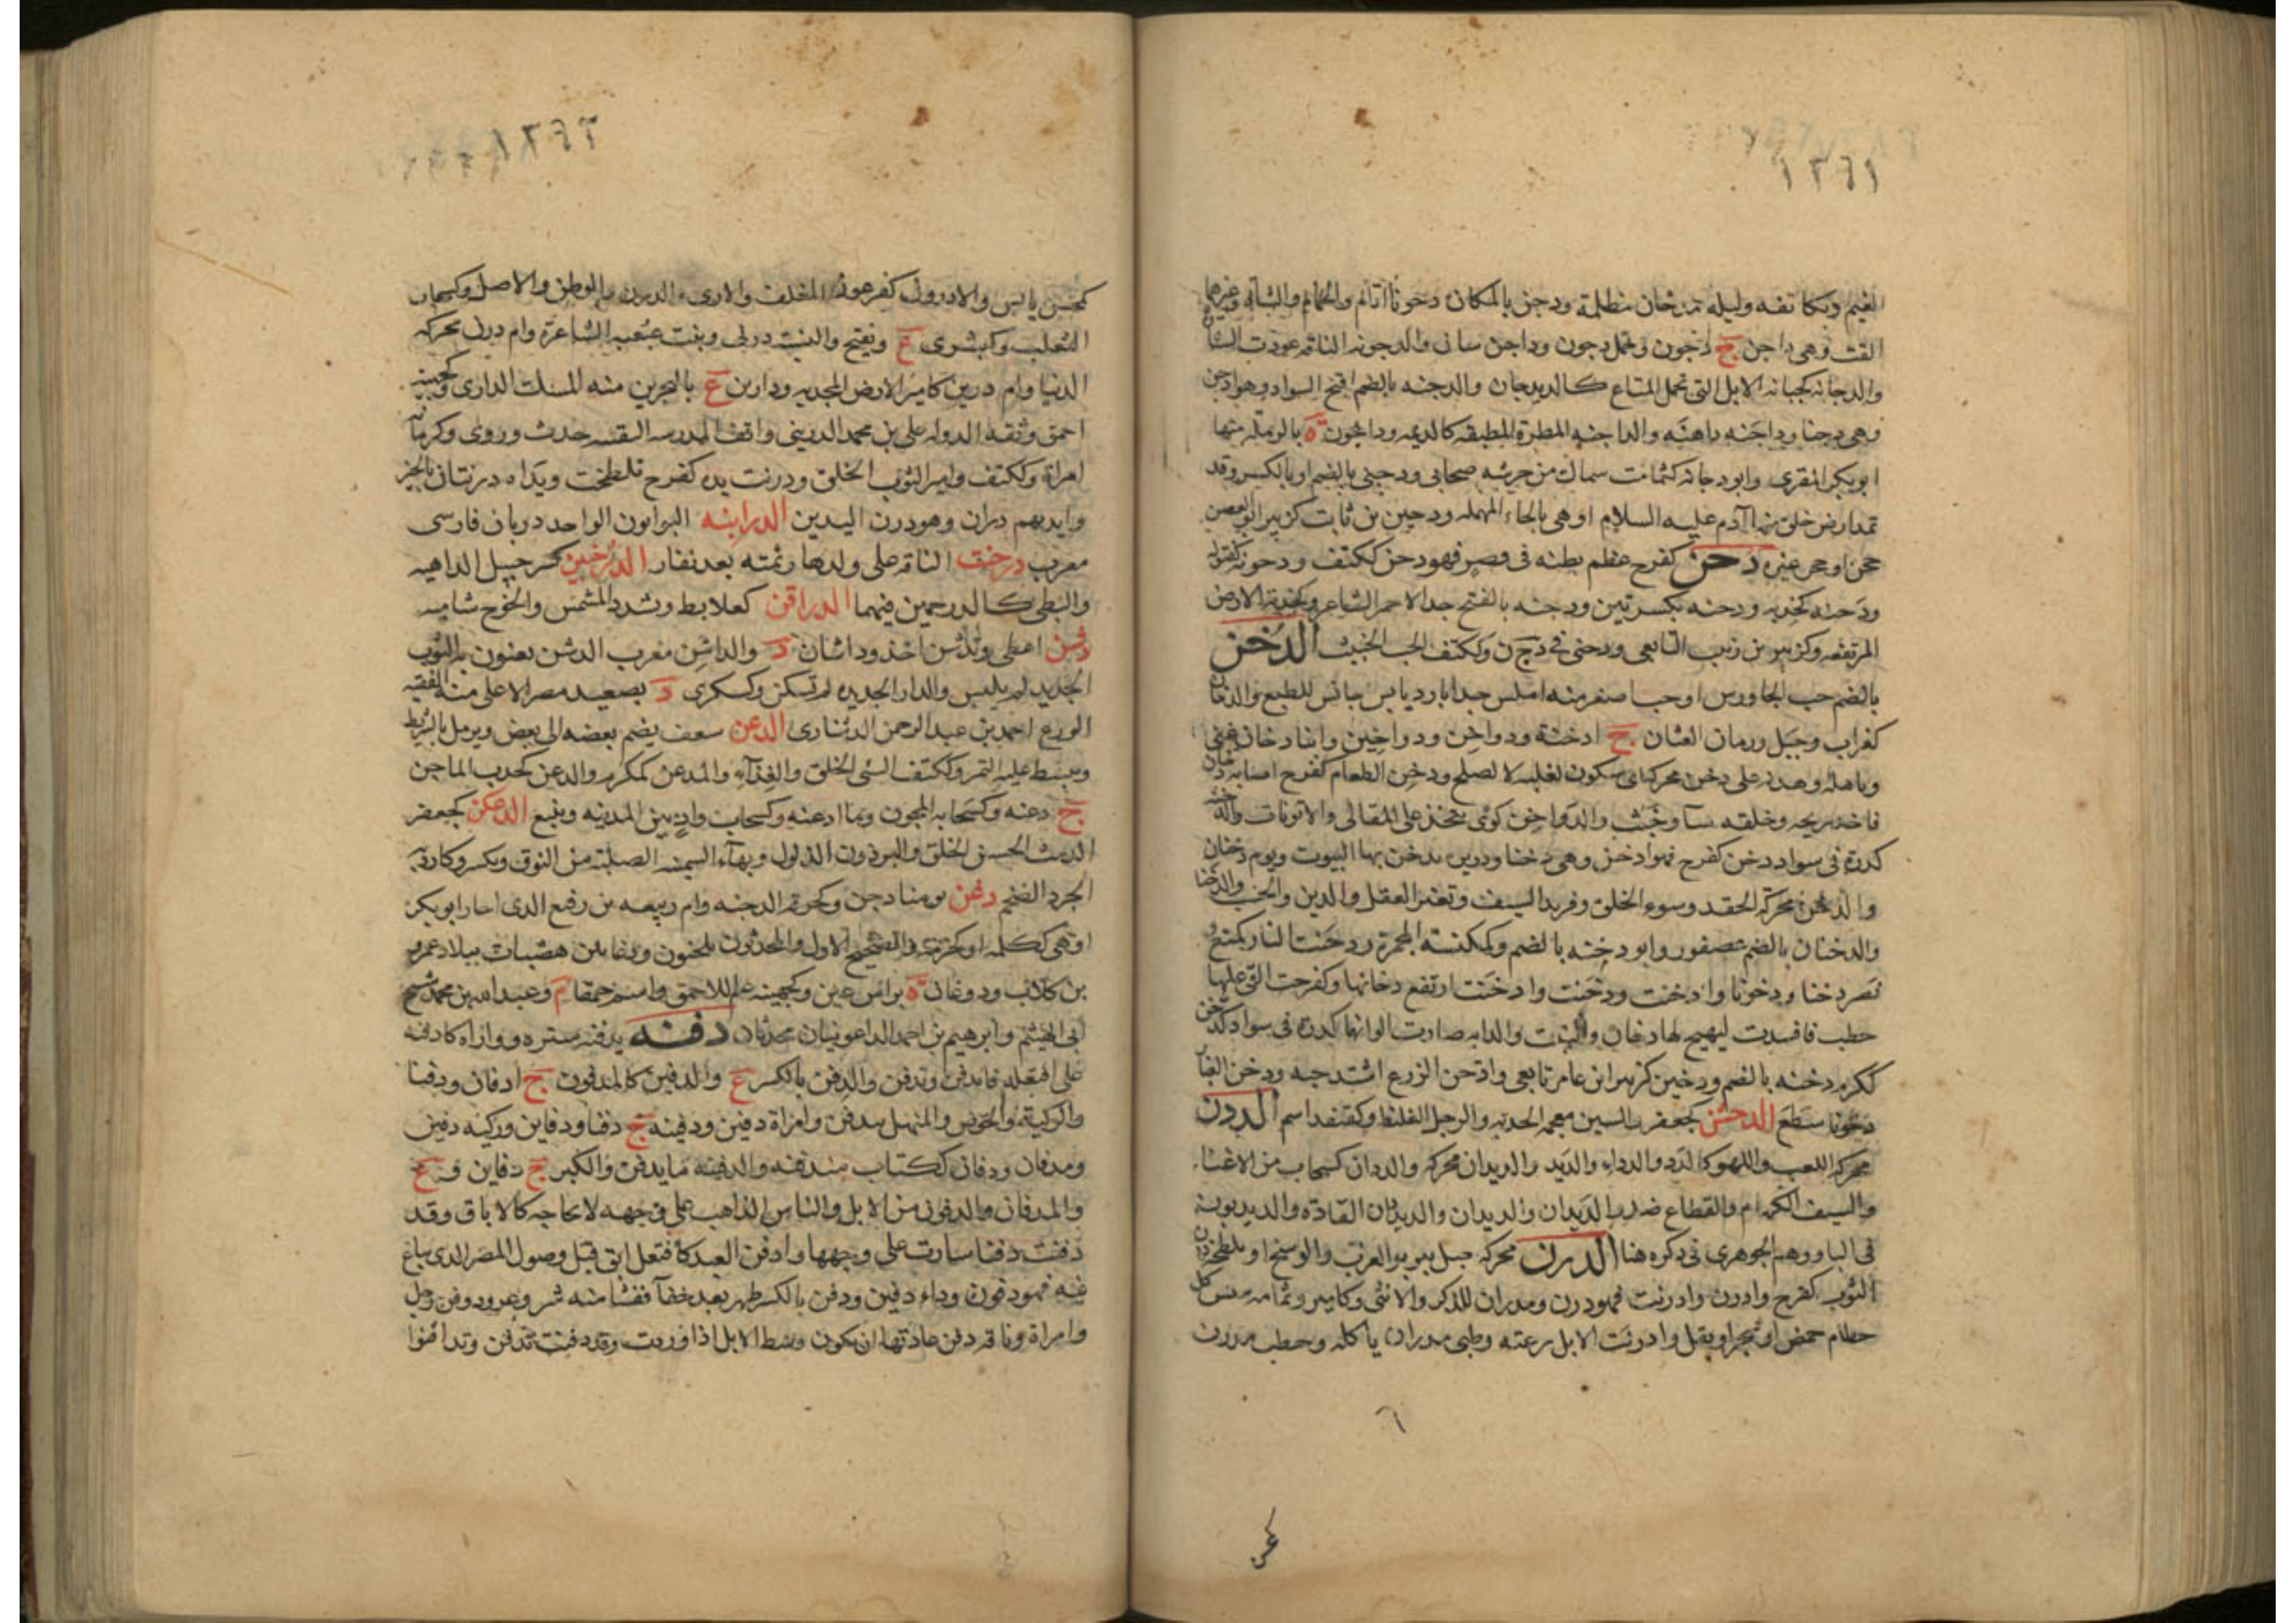 ١٣٦١
الغيم وتكاثفه وليلة مدجان مظلمة ودجن بالمكان دجونا اقام والحمام والشاة وغيرهما
الفت وهي داجن ج دواجن وجمل دجون وداجن سانى والدجونه الناقه عودت السنا
والدجانه كجبانه الابل التى تحمل المتاع كالديدجان والدجنه بالضم اقبح السواد وهو ادجن
وهي دجنا وداجنه داهنه والداجنه المطرة المطبقه كالديمه وداجون ة بالرمله منها
ابوبكر المقرى وابو دجانه كثمامت سماك من خرشه صحابى ودجنى بالضم او بالكسر وقد
تمد ارض خلق منها آدم عليه السلام او هى بالحاء المهمله ودجين بن ثابت كزبير ابو الغصن
جحى او جحى غيره دحن كفرح عظم بطنه فى قصر فهو دحن ككتف ودحونه
ودحنه كخدبه ودحنه بكسرتين ودحنه بالفتح جد الاحمر الشاعر وكخدبة الارض
المرتفعه وكزبير بن زنب التابعى ودحنى فى د ج ن وككتف الخب الخبيث الدخن
بالضم حب الجاورس او حب اصغر منه املس جدا بارد يابس حابس للطبع والدخان
كغراب وجبل ورمان العثان ج ادخنة ودواخن ودواخين وابنا دخان غنى
وباهله وهدنه على دخن محركه اى سكون لعلة لا لصلح ودخن الطعام كفرح اصابه دخان
فاخذ ريحه وخلقه ساء وخبث والدواخن كوى تتخذ على المقالى والاتونات والدخنه
كدرة فى سواد دخن كفرح فهو ادخن وهى دخنا وذريرة تدخن بها البيوت ويوم دخنان
والدخن محركة الحقد وسوء الخلق وفرند السيف وتغير العقل والدين والحسب والدخنا
والدخنان بالضم عصفور وابو دخنه بالضم وكمكنسة المجمرة ودخنت النار كمنع و
نصر دخنا ودخونا وادخنت ودخنت وادخنت ارتفع دخانها وكفرحت القى عليها
حطب فافسدت ليهيج لها دخان والنبت والدابه صارت الوانها كدرة فى سواد كدخن
ككرم دخنه بالضم ودخين كزبير ابن عامر تابعى وادخن الزرع اشتد حبه ودخن الغبار
دخونا سطع الدخشن كجعفر بالشين معجمه الحدبه والرجل الغليظ وكقنفد اسم الددن
محركه اللعب واللهو كالدد والددا والديد والديدان محركه والددان كسحاب من لا غناء
والسيف الكهام والقطاع ضد والديدان والديدان والديدان القادة والديدبون
فى البا ووهم الجوهرى فى ذكره هنا الدرن محركه جبل ببربر العرب والوسخ او تلطخه درن
الثوب كفرح وادرن وادرنت فهو درن ومدران للذكر والانثى وكامير وثمامه يبس كل
حطام حمض او شجر او بقل وادرنت الابل رعته وظبى مدران ياكله وحطب مدرن
١٣٦٢
كمحسن يابس والادرون كفرعون المعلف والارى والدرن والوطن والاصل وكسحاب
الثعلب وكبشرى ع ويفتح والنسبة درنى وبنت عبعبه الشاعرة وام درن محركه
الدنيا وام درين كامير الارض المجدبه ودارين ع بالبحرين منه المسك الدارى وكجهينه
احمق وثقة الدوله على بن محمد الدرينى واقف المدرسه الثقتيه حدث وروى وكرمانه
امراة وككتف وامير الثوب الخلق ودرنت يده كفرح تلطخت ويداه درنتان بالخير
وايديهم دران وهو درن اليدين الدرابنه البوابون الواحد دربان فارسى
معرب درخنت الناقه على ولدها رئمته بعد نفار الدرخبين كشرحبيل الداهيه
والبطى كالدرخمين فيهما الدراقن كعلابط وتشدد المشمش والخوخ شاميه
دشن اعطى وتدشن اخذ وداشان د والداشن معرب الدشن يعنون به الثوب
الجديد لم يلبس والدار الجديده لم تسكن وكسكرى د بصعيد مصر الاعلى منه الفقيه
الورع احمد بن عبد الرحمن الدشنارى الدعن سعف يضم بعضه الى بعض ويرمل بالشريط
ويبسط عليه التمر وككتف السئ الخلق والغذاء والمدعن كمكرم والدعن كخدب الماجن
ج دعنه وكسحابه المجون وما ادعنه وكسحاب واد بين المدينه وينبع الدعكن كجعفر
الدمث الحسن الخلق والبرذون الذلول وبهاء السمينه الصلبه من النوق ويكسر وكاردب
الجرد الضخم دغن يومنا دجن وكحزقة الدجنه وام ربيعه بن رفيع الذى اجار ابو بكر
اوهى ككلمه او كحزقه والصحيح الاول والمحدثون يلحنون ودغانن هضبات ببلاد عمرو
بن كلاب ودوغان ة براس عين وكجهينه علم للاحمق واسم حمقا م وعبد الله بن محمد شيخ
ابى الهيثم وابرهيم بن احمد الداعونيان محدثان دفنه يدفنه ستره وواراه كادفنه
على افتعله فاندفن وتدفن والدفن بالكسر ع والدفين كالمدفون ج ادفان ودفنا
والركية والحوض والمنهل يندفن وامراة دفين ودفينه ج دفنا ودفاين وركيه دفين
ومدفان ودفان ككتاب مندفنه والدفينه ما يدفن والكبر ج دفاين و ع
والمدفان والدفون من الابل والناس الذاهب على وجهه لا لحاجه كالاباق وقد
دفنت دفنا سارت على وجهها وادفن العبد كافتعل ابق قبل وصول المصر الذى يباع
فيه فهو دفون وداء دفين ودفن بالكسر ظهر بعد خفاء ففشا منه شر وعر ودفن رجل
وامراة وناقه دفن عادتها ان تكون وسط الابل اذا وردت وقد دفنت تدفن وتدافنوا